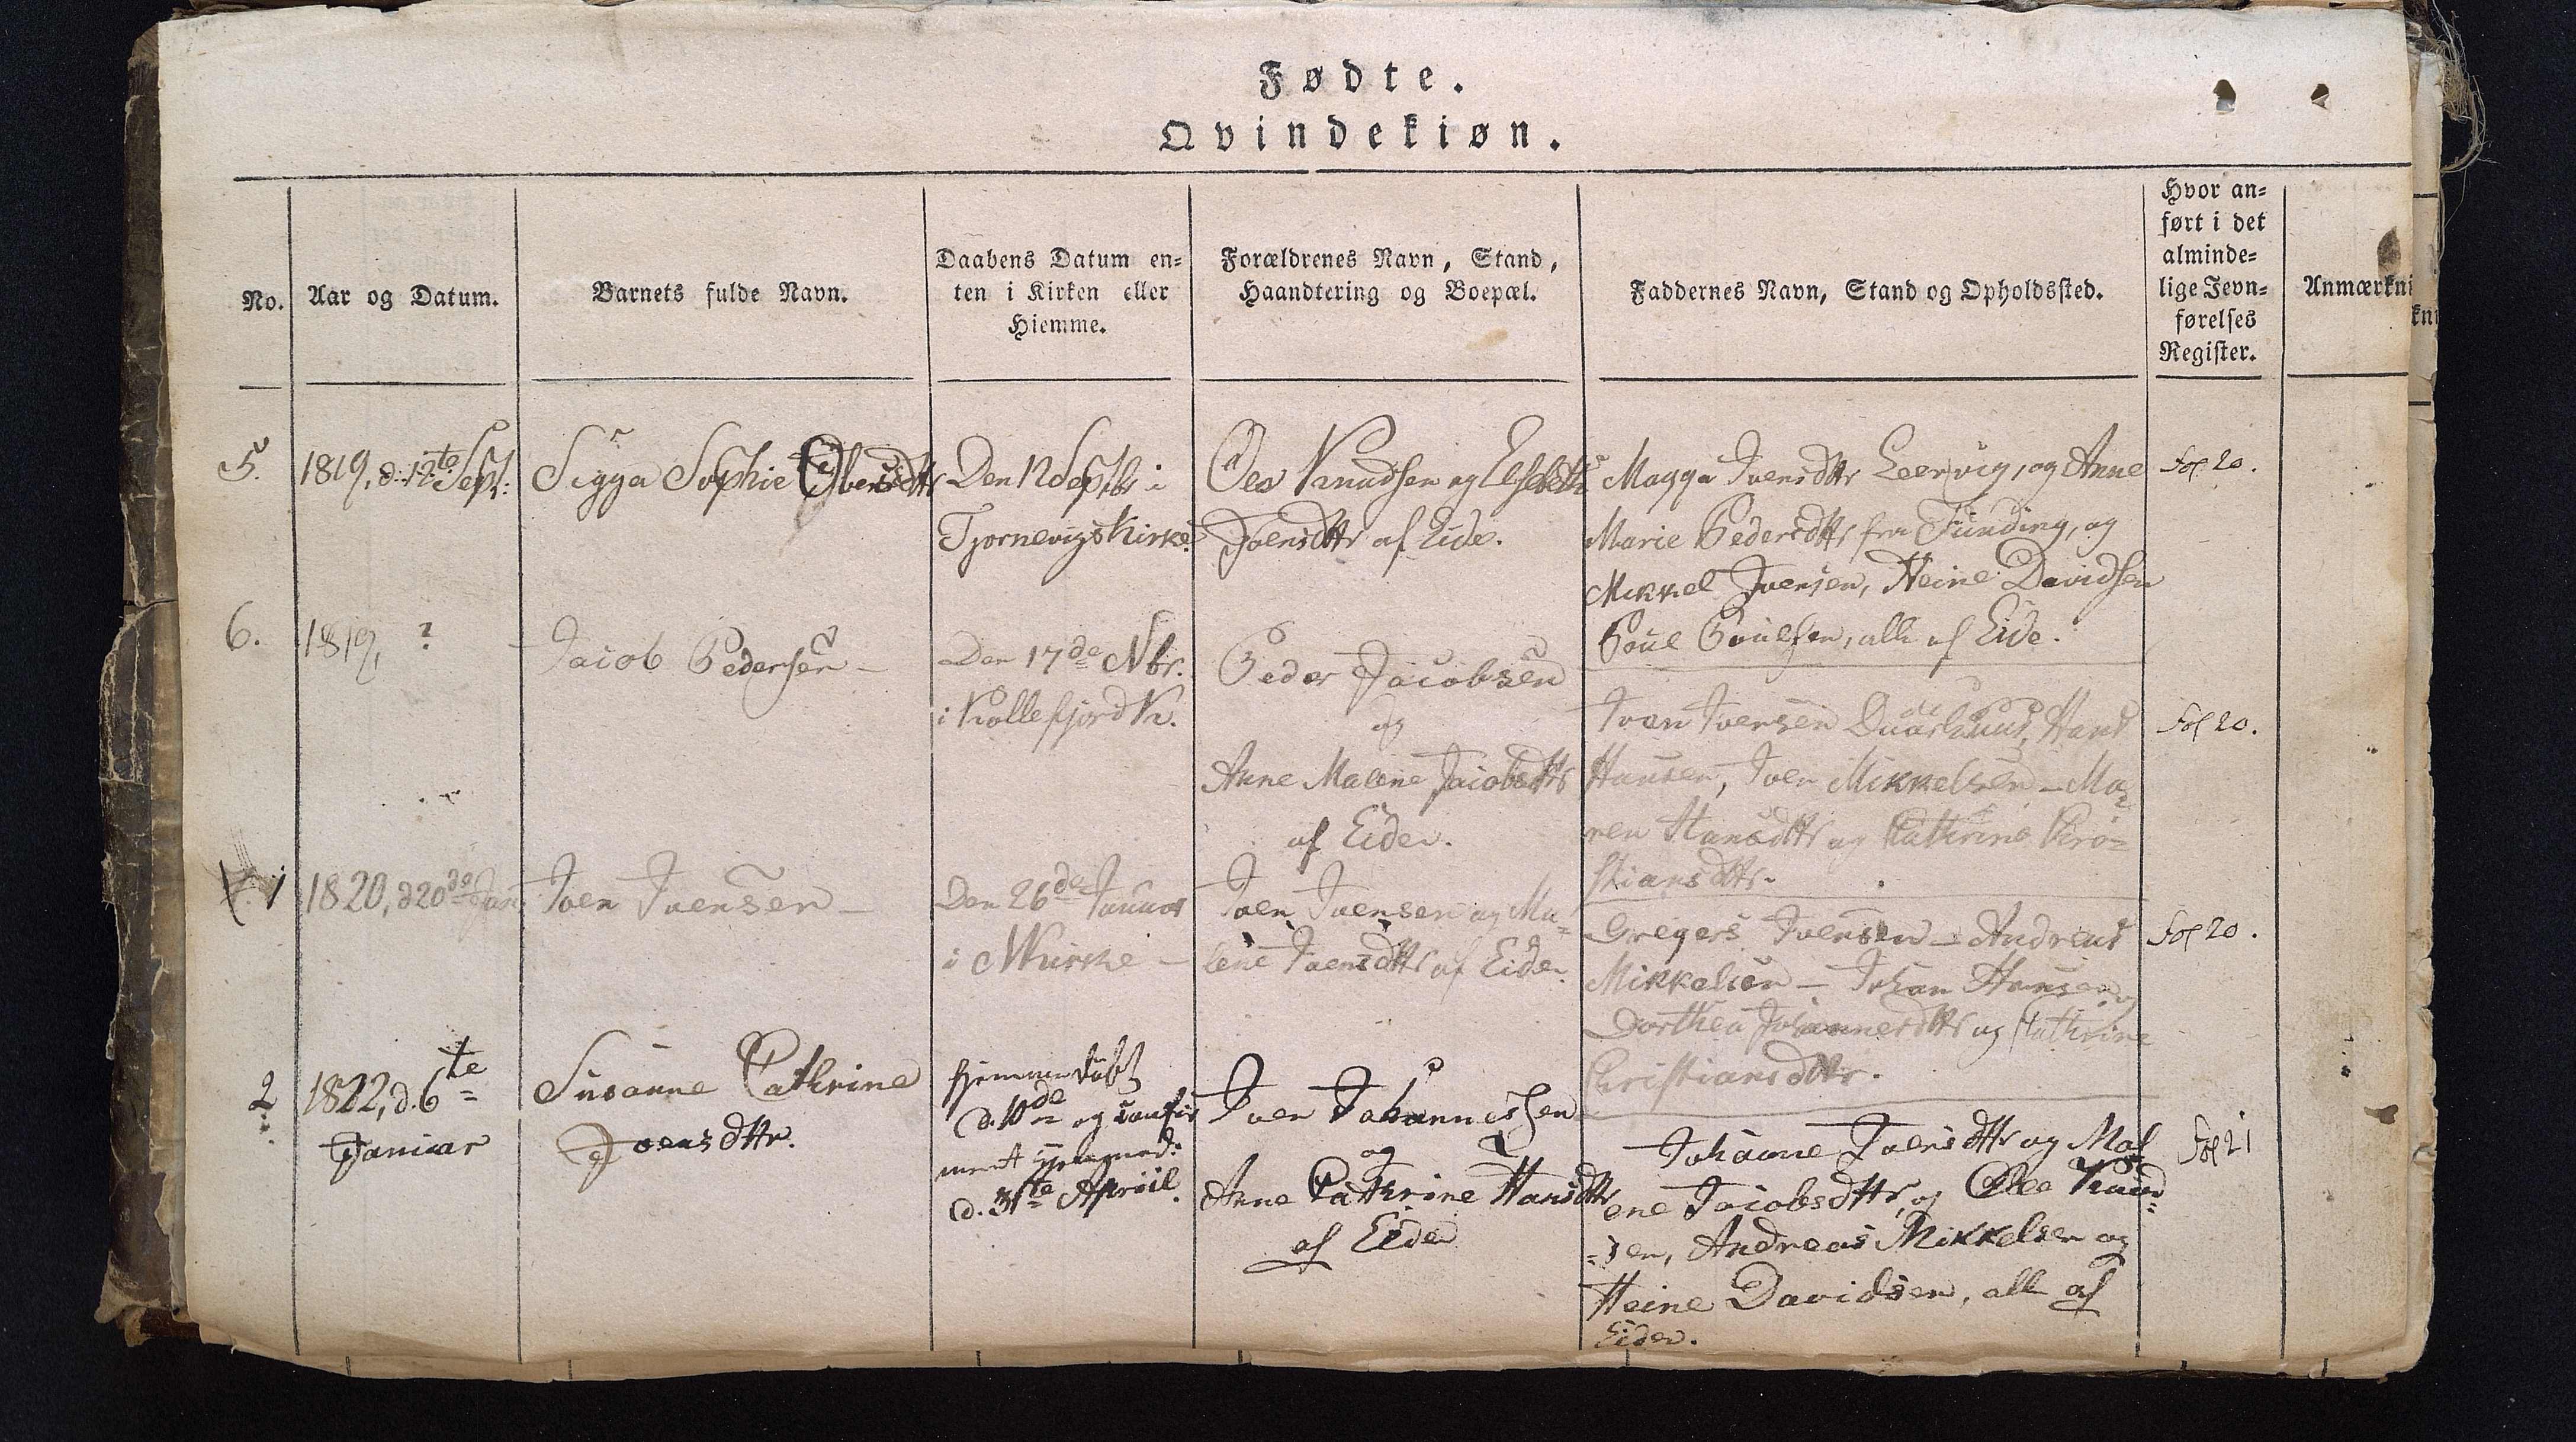 Fødte.
Qvindekiøn.
No.
Aar og Datum.
Barnets fulde Navn.
Daabens Datum en-
ten i Kirken eller
Hiemme.
Forældrenes Navn, Stand,
Haandtering og Boepæl.
Faddernes Navn, Stand og Opholdssted.
Hvor an-
ført i det
alminde-
lige Jevn-
førelses
Register.
Anmærkni
5.
1819, d. 12te Sept:
Sigga Sophie
Den 12 Septbr i
Tjørnevigs Kirke.
Knudsen og Elsebeth
Joensdttr af Eide.
Magga Joensdttr Leervig, og Anne
Marie Pedersdttr fra Funding, og
Mikkel Joensen, Heine Davidsen
Poul Poulsen, alle af Eide.
Fol 20.
6.
1819, ?
Jacob Pedersen
Den 17de Nbr.
i Kollefjord K.
Peder Jacobsen
og
Anne Malene Jacobsdttr
af Eide.
Joen Joensen Hans
Hansen, Joen Mikkelsen - Ma-
ren Hansdttr og Cathrine Kri-
stiansdttr.
Fol 20.
1
1820, d 20de Jan
Joen Joensen
Den 26de Januar
i NKirke
Joen Joensen og Ma-
lene Joensdttr af Eide.
Gregers Joensen - Andreas
Mikkelsen - Johan Hansen og
Dorthea Johannesdttr og Cathrine
Christiansdttr.
Fol 20.
2
1822, d. 6te
Januar
Susanne Cathrine
Joensdttr.
hjemmedøbt
d. 10de og confir
ment
d. 31te Apriil.
Joen Johannessen
og
Anne Cathrine Hansdttr
af Eide
Johanne Joensdttr og Mal
ene Jacobsdttr, og Knud-
-sen, Andreas Mikkelsen og
Heine Davidsen, alle af
Eide.
Fol 21